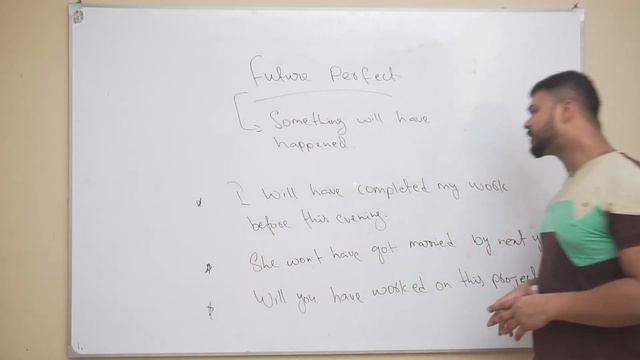 Future Perfect
Something will have
happened.
I will have completed my work
before this evening.
She won't have got married by next
Will you have worked on this project